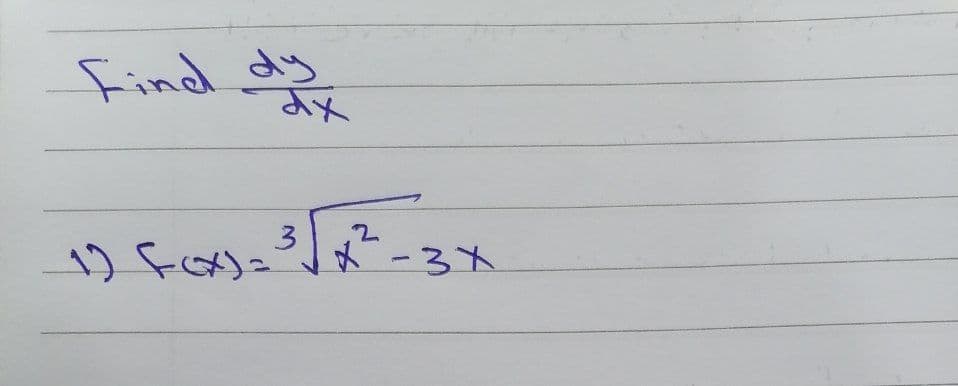 Find dy/dx
1) f(x) = ∛x² - 3x